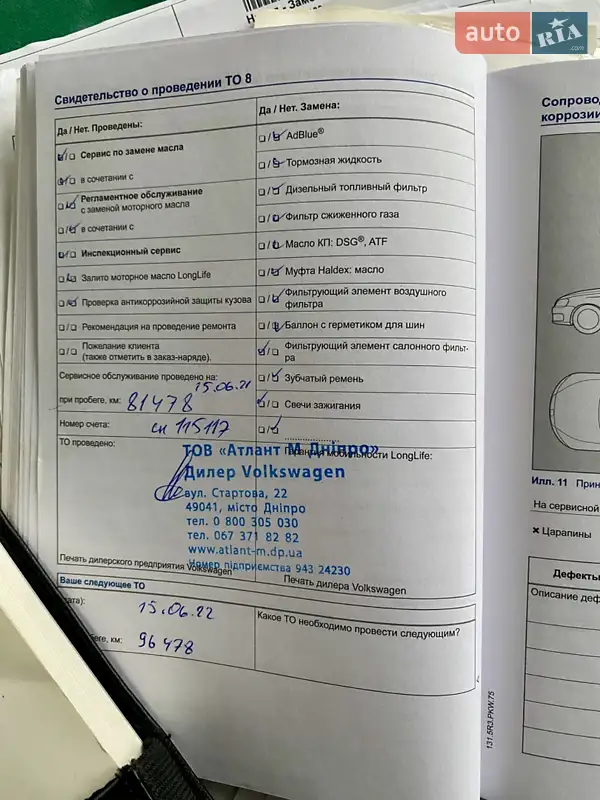 auto RIA .com
Свидетельство о проведении ТО 8
Да / Нет. Проведены:
Сервис по замене масла
в сочетании с
Регламентное обслуживание
с заменой моторного масла
в сочетании с
Инспекционный сервис
Залито моторное масло LongLife
Проверка антикоррозийной защиты кузова
Рекомендация на проведение ремонта
Пожелание клиента
(также отметить в заказ-наряде).
Сервисное обслуживание проведено на:
15.06.21
при пробеге, км: 81478
Номер счета: сн 115117
ТО проведено:
Печать дилерского предприятия Volkswagen
Да / Нет. Замена:
AdBlue®
Тормозная жидкость
Дизельный топливный фильтр
Фильтр сжиженного газа
Масло КП: DSG®, ATF
Муфта Haldex: масло
Фильтрующий элемент воздушного
фильтра
Баллон с герметиком для шин
Фильтрующий элемент салонного фильт-
ра
Зубчатый ремень
Свечи зажигания
Гарантия мобильности LongLife:
ТОВ «Атлант М Дніпро»
Дилер Volkswagen
вул. Стартова, 22
49041, місто Дніпро
тел. 0 800 305 030
тел. 067 371 82 82
www.atlant-m.dp.ua
Номер підприємства 943 24230
Печать дилера Volkswagen
Ваше следующее ТО
15.06.22
км: 96478
Какое ТО необходимо провести следующим?
131.5R3.PKW.75
Сопровод
коррозии
Илл. 11 Прин
На сервисной
× Царапины
Дефекты
Описание деф